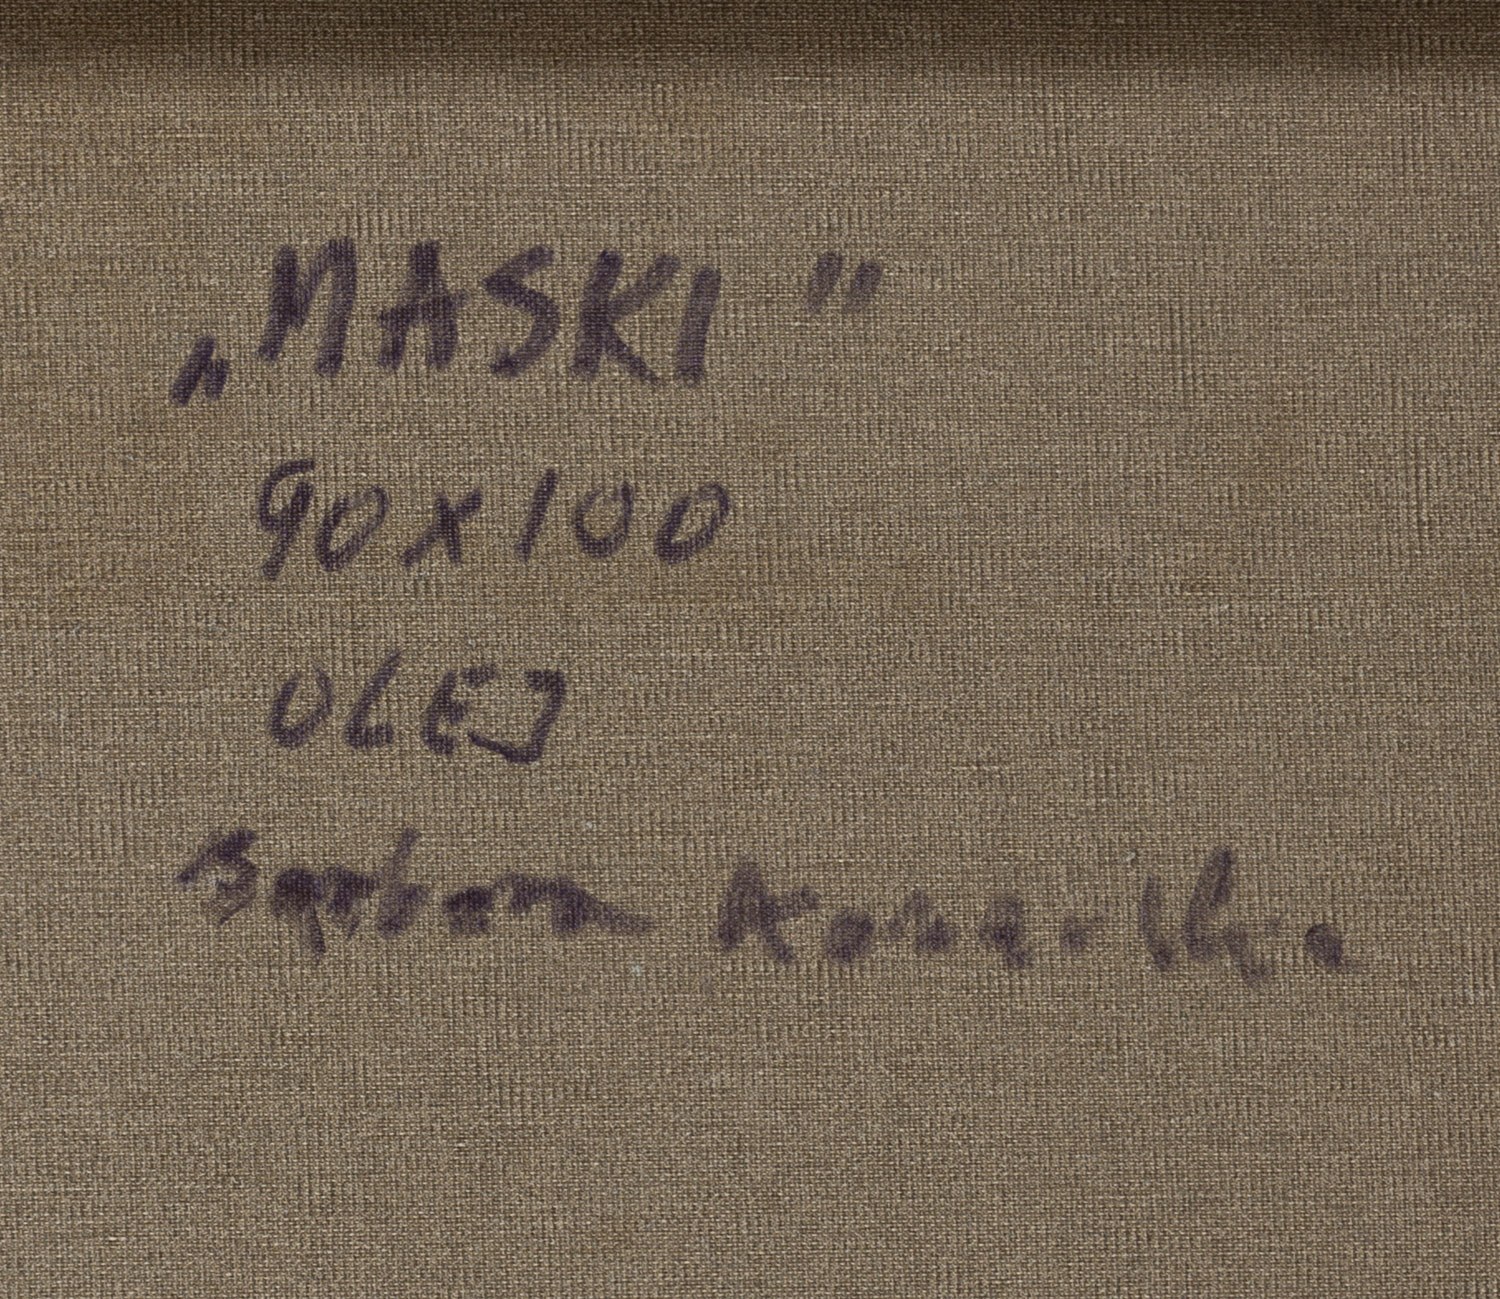 „MASKI”
90x100
OLEJ
Barbara